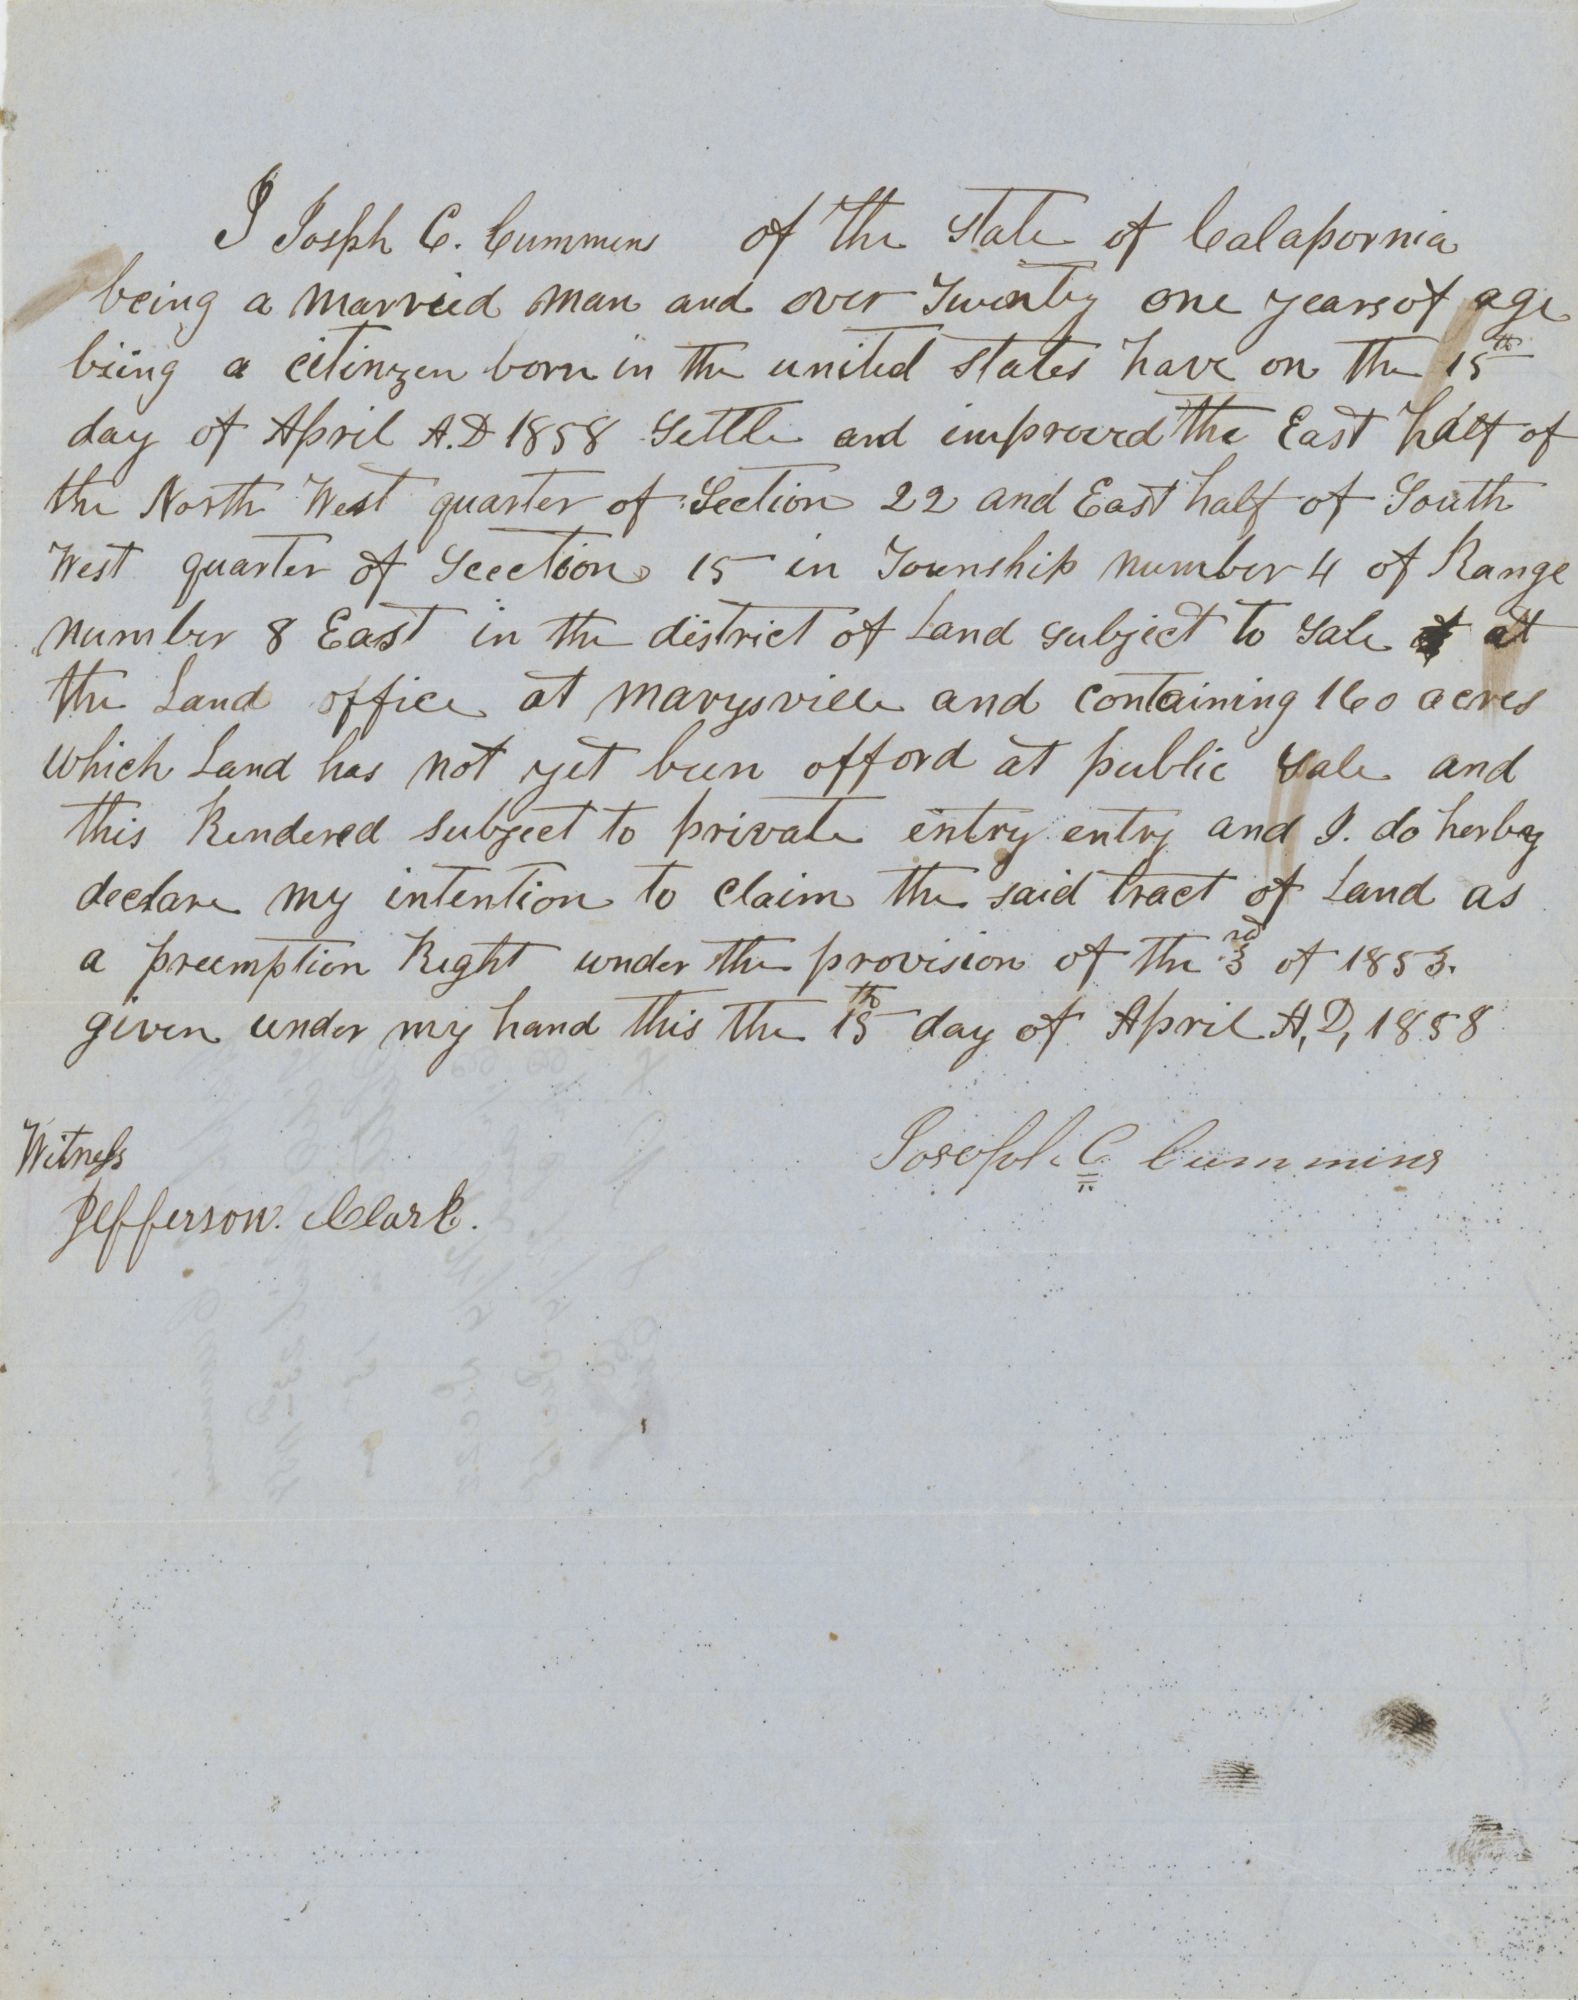 I Josph C. Cummins of the State of Calapornia
being a married man and over Twenty one years of age
being a citinzen born in the united States have on the 15th
day of April A.D 1858 Settle and improved the East half of
the North West quarter of Section 22 and East half of South
West quarter of Scection 15 in Township number 4 of Range
number 8 East in the district of Land subject to Sale at
the Land office at Marysville and containing 160 acres
which Land has not yet been offord at public Sale and
this Rendered subject to private entry entry and I. do herby
declare my intention to claim the said tract of Land as
a preemption Right under the provision of the 3rd of 1853.
given under my hand this the 15th day of April A,D, 1858
Witness
Joseph C Cummins
Jefferson. Clark.